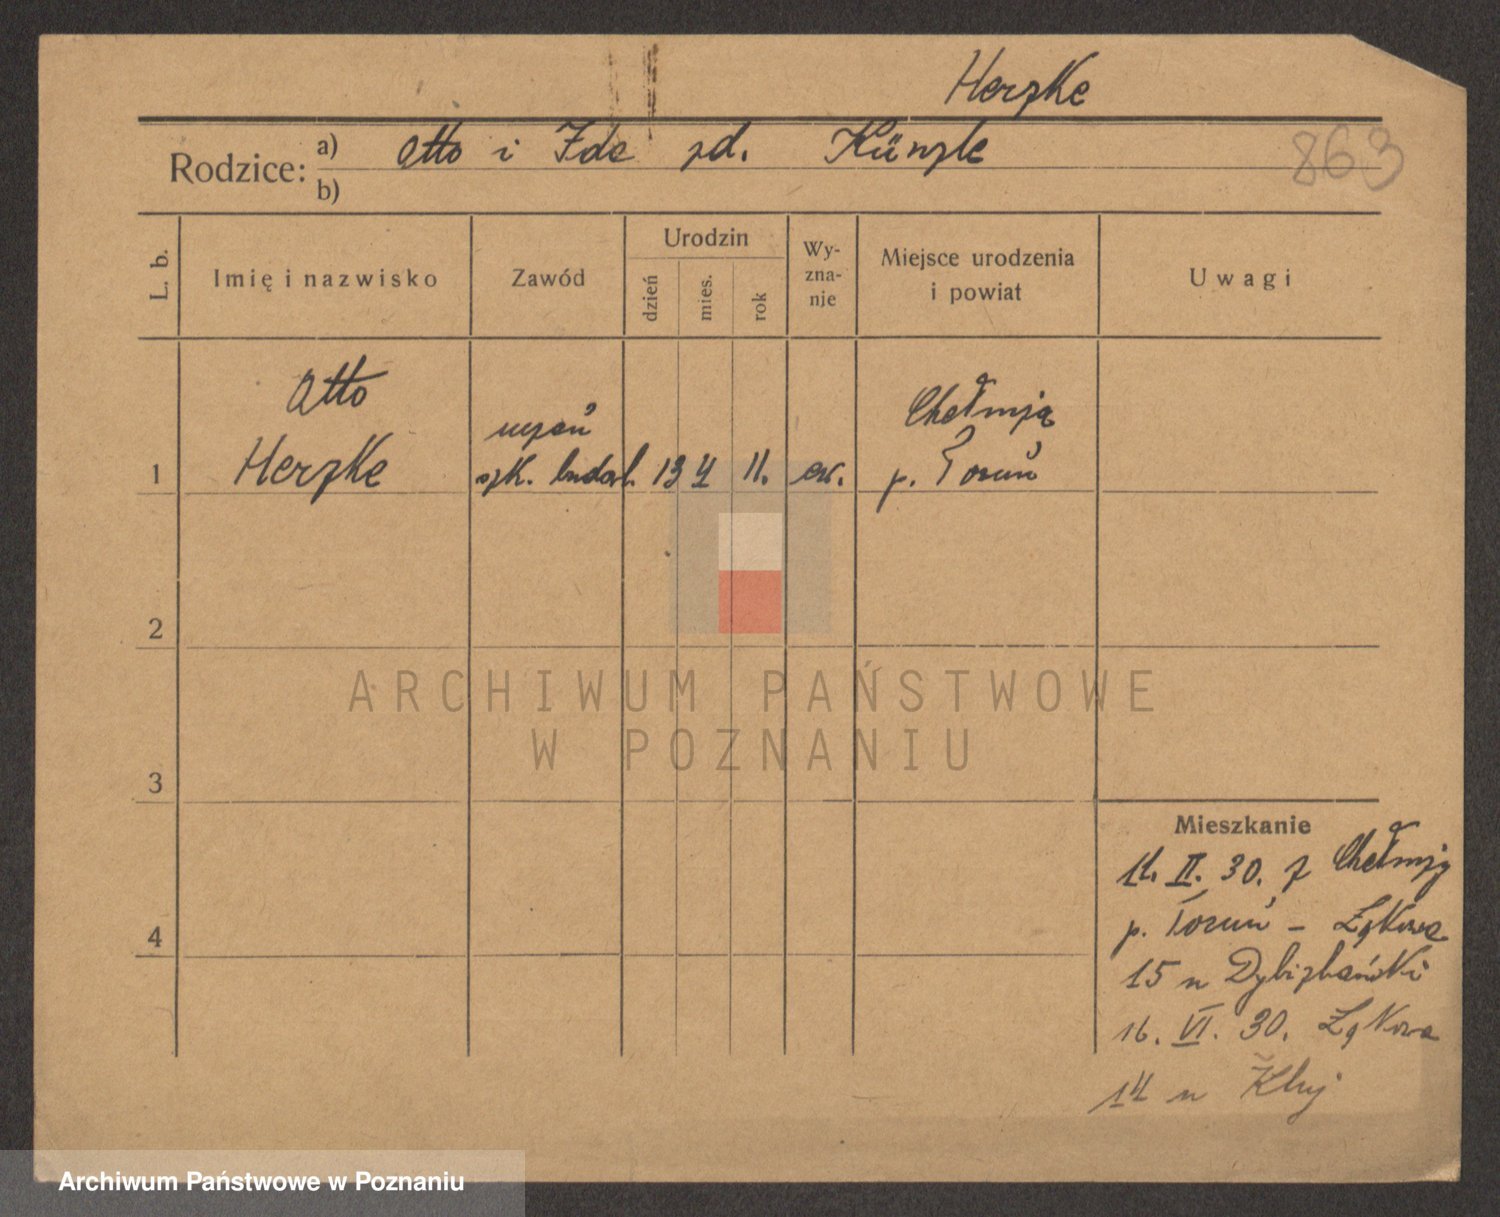 Herzke
Rodzice: a) Otto i Ida zd. Künzle
b)
863
L. b.
Imię i nazwisko
Zawód
Urodzin
dzień
mies.
rok
Wy-
zna-
nie
Miejsce urodzenia
i powiat
Uwagi
1
Otto
Herzke
uczeń
szk. budowl.
13
11.
ew.
Chełmża
p. Toruń
2
3
4
Mieszkanie
11. II. 30. z Chełmży
p. Toruń - Łąkowa
15 u Dybizbański
16. VI. 30. Łąkowa
14 u
ARCHIWUM PAŃSTWOWE
W POZNANIU
Archiwum Państwowe w Poznaniu